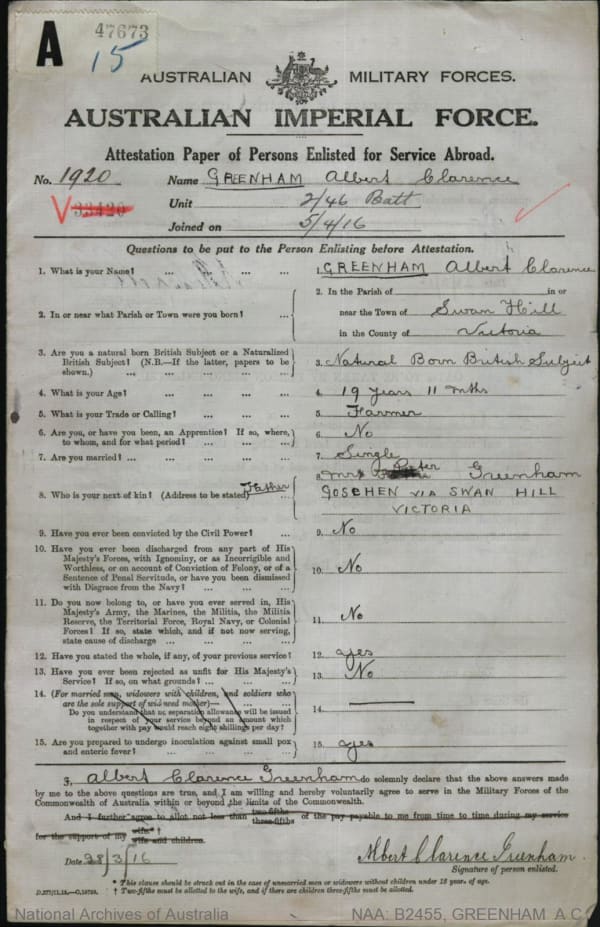 A
47673
15
AUSTRALIAN MILITARY FORCES.
AUSTRALIAN IMPERIAL FORCE.
Attestation Paper of Persons Enlisted for Service Abroad.
No. 1920 Name GREENHAM Albert Clarence
33420 Unit 2/46 Batt
Joined on 5/4/16
Questions to be put to the Person Enlisting before Attestation.
1. What is your Name? ... ... ... 1. GREENHAM Albert Clarence
2. In or near what Parish or Town were you born? ... 2. In the Parish of in or
near the Town of Swan Hill
in the County of Victoria
3. Are you a natural born British Subject or a Naturalized
British Subject? (N.B.—If the latter, papers to be
shown.) ... ... ... ... 3. Natural Born British Subject
4. What is your Age? ... ... ... 4. 19 years 11 mths
5. What is your Trade or Calling? ... ... ... 5. Farmer
6. Are you, or have you been, an Apprentice? If so, where,
to whom, and for what period? ... ... ... 6. No
7. Are you married? ... ... ... ... 7. Single
8. Who is your next of kin? (Address to be stated) Father 8. Mr Peter Greenham
GOSCHEN VIA SWAN HILL
VICTORIA
9. Have you ever been convicted by the Civil Power? ... 9. No
10. Have you ever been discharged from any part of His
Majesty's Forces, with Ignominy, or as Incorrigible and
Worthless, or on account of Conviction of Felony, or of a
Sentence of Penal Servitude, or have you been dismissed
with Disgrace from the Navy? ... ... ... 10. No
11. Do you now belong to, or have you ever served in, His
Majesty's Army, the Marines, the Militia, the Militia
Reserve, the Territorial Force, Royal Navy, or Colonial
Forces? If so, state which, and if not now serving,
state cause of discharge ... ... ... 11. No
12. Have you stated the whole, if any, of your previous service? 12. yes
13. Have you ever been rejected as unfit for His Majesty's
Service? If so, on what grounds? ... ... ... 13. No
14. (For married men, widowers with children, and soldiers who
are the sole support of widowed mother)—
Do you understand that no separation allowance will be issued
in respect of your service beyond an amount which
together with pay would reach eight shillings per day? 14.
15. Are you prepared to undergo inoculation against small pox
and enteric fever? ... ... ... ... 15. yes
I, Albert Clarence Greenham do solemnly declare that the above answers made
by me to the above questions are true, and I am willing and hereby voluntarily agree to serve in the Military Forces of the
Commonwealth of Australia within or beyond the limits of the Commonwealth.
And I further agree to allot not less than two-fifths three-fifths of the pay payable to me from time to time during my service
for the support of my wife* wife and children. †
Date 28/3/16 Albert Clarence Greenham
Signature of person enlisted.
* This clause should be struck out in the case of unmarried men or widowers without children under 18 years of age.
† Two-fifths must be allotted to the wife, and if there are children three-fifths must be allotted.
National Archives of Australia NAA: B2455, GREENHAM A C